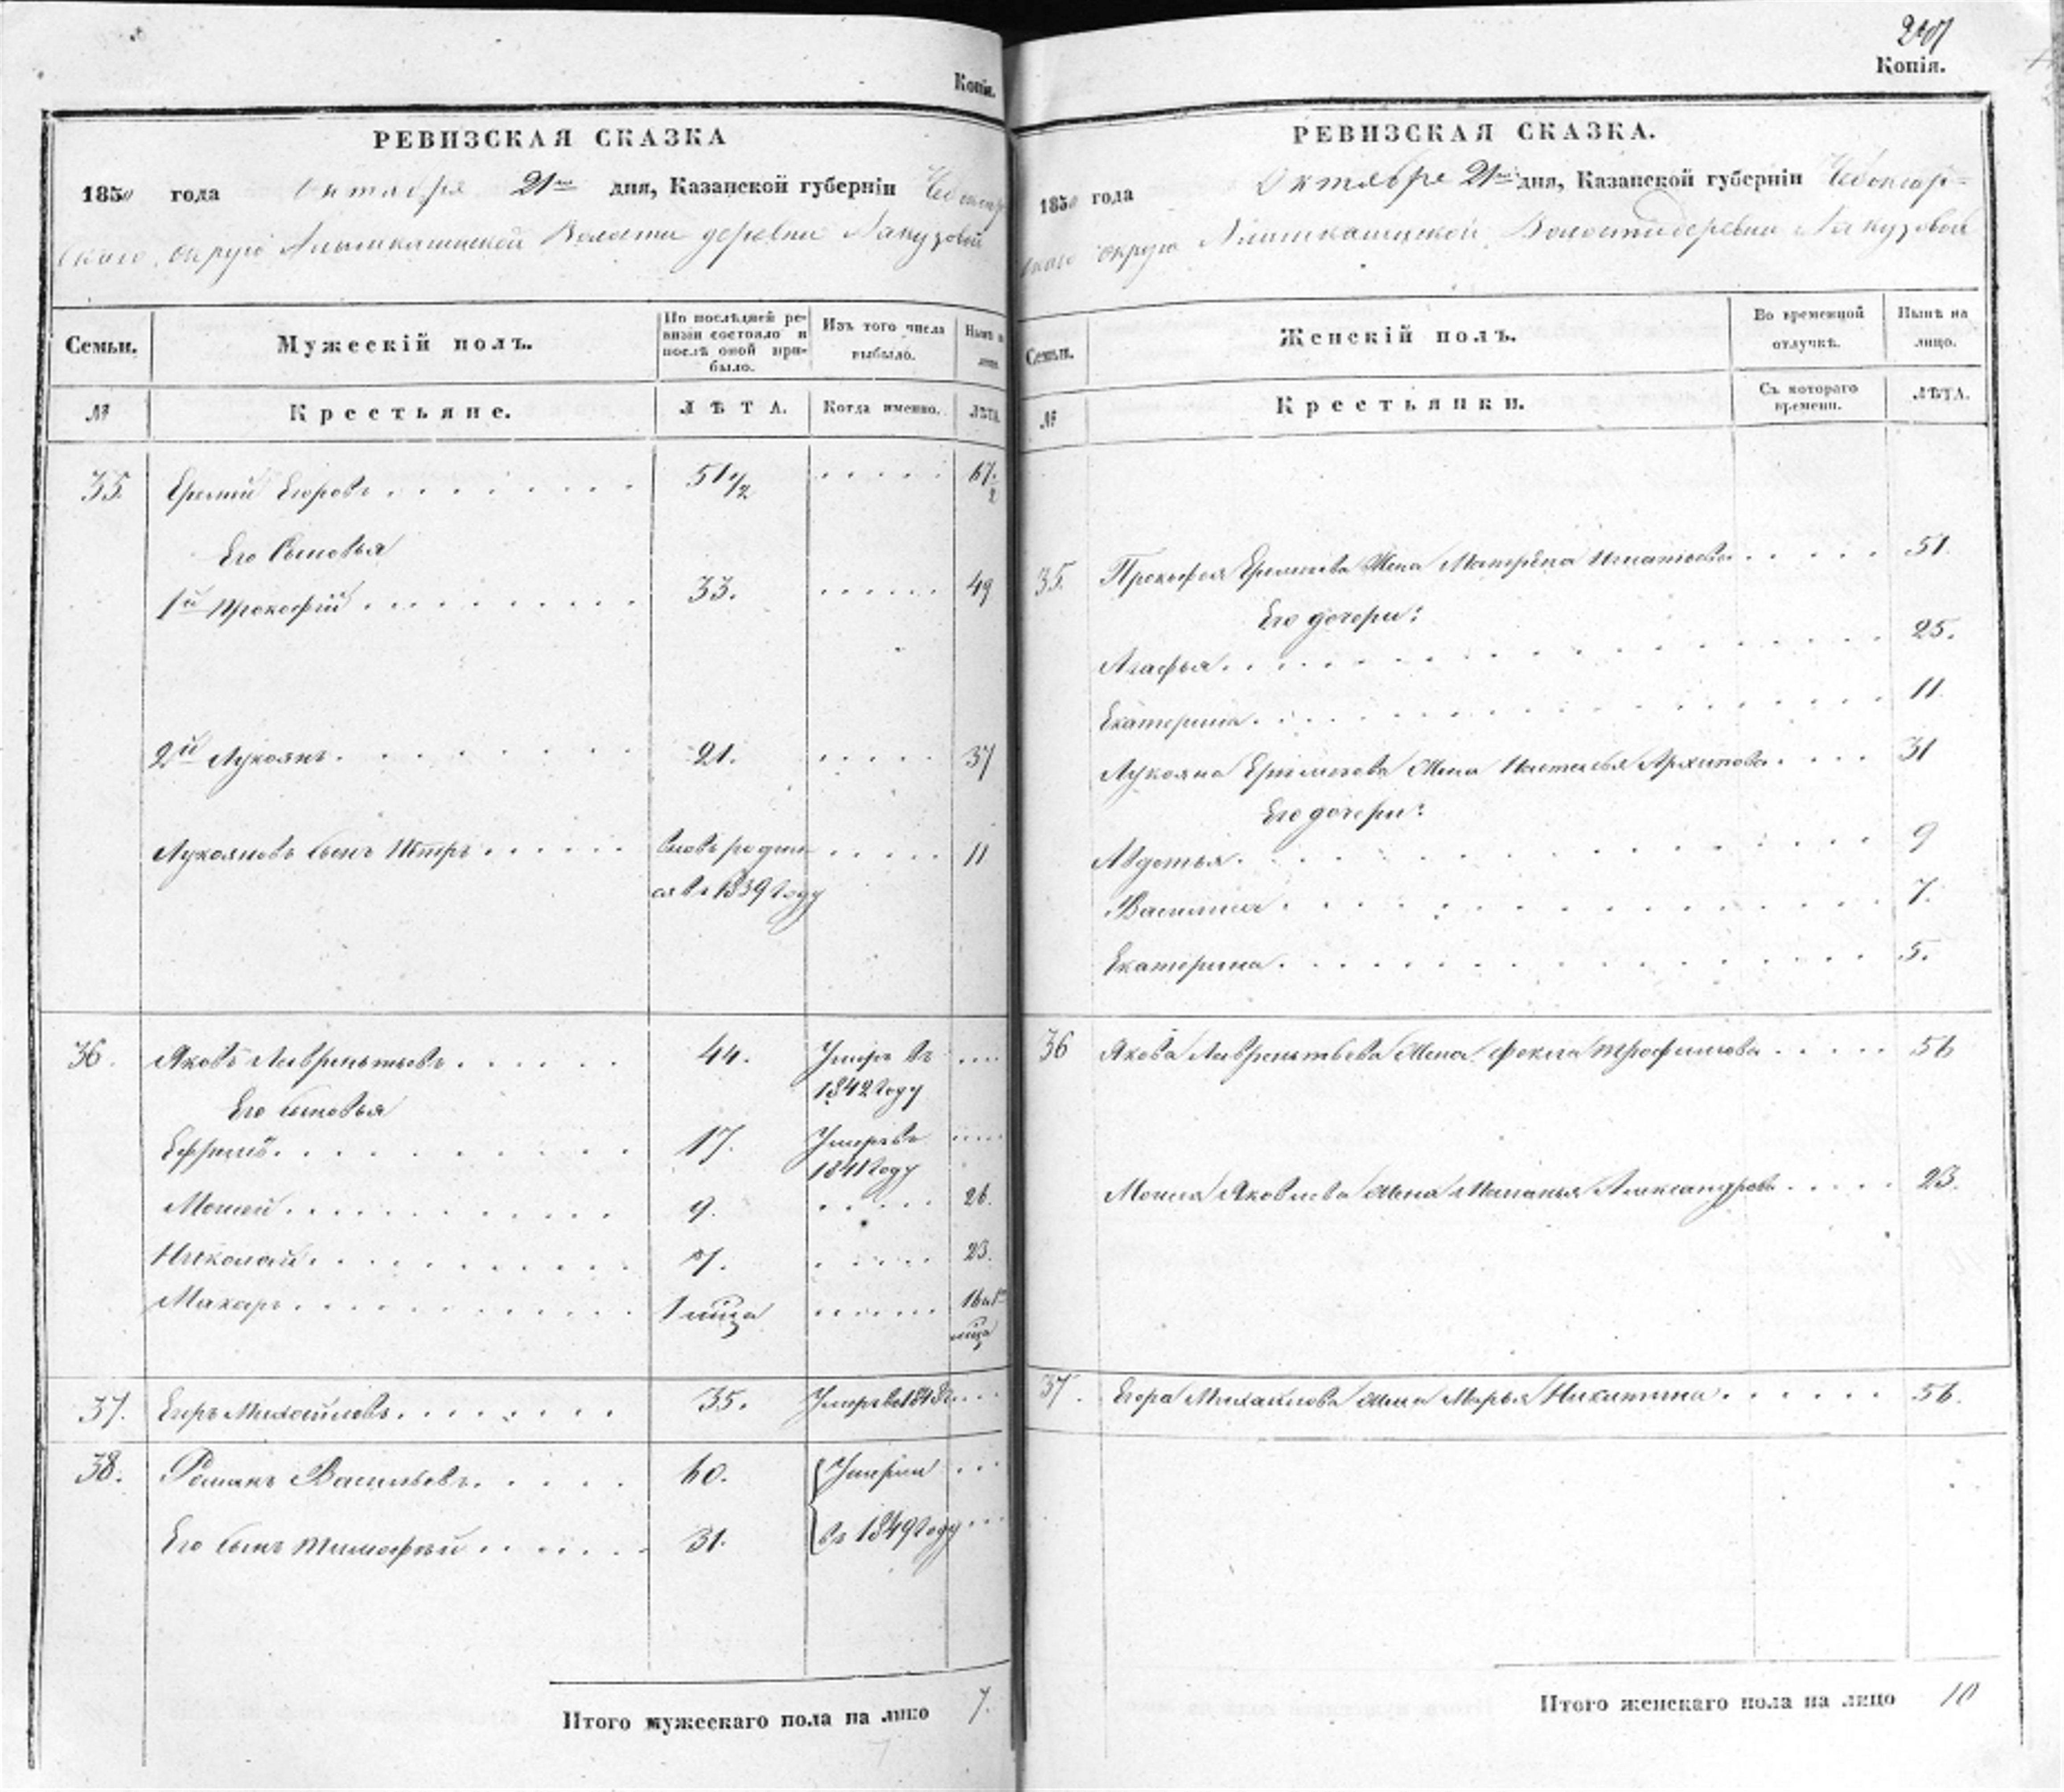 Копія.
РЕВИЗСКАЯ СКАЗКА
1850 года Октября 21го дня, Казанской губерніи Чебоксар
скаго округа Алымкасинской Волости деревни
Семьи.
Мужескій полъ.
По послѣдней ре-
визіи состояло и
послѣ оной при-
было.
Изъ того числа
выбыло.
Нынѣ на
лицо.
№
Крестьяне.
ЛѢТА.
Когда именно.
ЛѢТА.
35. Еремѣй Егоровъ 51 1/2 67 1/2
Его Сыновья
1й Прокофій 33. 49
2й Лукоянъ 21. 37
Лукояновъ сынъ Петръ вновь родил 11
ся въ 1839 году
36. Яковъ Лаврентьевъ 44. Умеръ въ
1842 году
Его сыновья
Ефремъ 17. Умеръ въ
1841 году
Моисей 9. 26.
Николай 7. 23.
Макаръ 1 мѣца 16 и 1
мѣца
37. Егоръ Михайловъ 35. Умеръ въ 1848 г.
38. Романъ Васильевъ 60. Умерли
Его сынъ Тимофей 31. въ 1849 году
Итого мужескаго пола на лицо 7.
Копія.
РЕВИЗСКАЯ СКАЗКА.
1850 года Октября 21го дня, Казанской губерніи Чебоксар=
скаго округа Алымкасинской Волости деревни
Семьи.
Женскій полъ.
Во временной
отлучкѣ.
Нынѣ на
лицо.
№
Крестьянки.
Съ котораго
времени.
ЛѢТА.
35. Прокофья Еремѣева Жена Матрена Игнатьева 51.
Его дочери:
Агафья 25.
Екатерина 11.
Лукояна Еремѣева Жена Настасья Архипова 31
Его дочери:
Авдотья 9
Василиса 7.
Екатерина 5.
36 Якова Лаврентьева Жена Фекла Трофимова 56
Моисея Яковлева жена Маланья Александрова 23.
37. Егора Михайлова жена Марья Никитина 56.
Итого женскаго пола на лицо 10